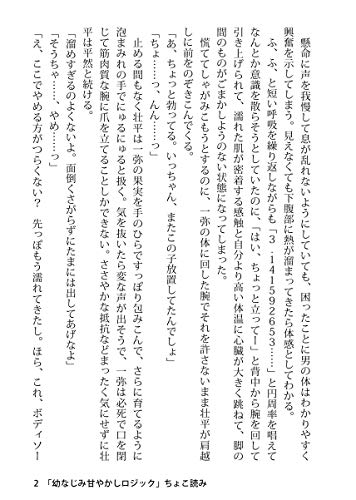 懸命に声を我慢して息が乱れないようにしていても、困ったことに男の体はわかりやすく
興奮を示してしまう。見えなくても下腹部に熱が溜まってきたら体感としてわかる。
ふ、ふ、と短い呼吸を繰り返しながらも「3．141592653……」と円周率を唱えて
なんとか意識を散らそうとしていたのに、「はい、ちょっと立ってー」と背中から腕を回して
引き上げられて、濡れた肌が密着する感触と自分より高い体温に心臓が大きく跳ねて、脚の
間のものがごまかしようのない状態になってしまった。
慌ててしゃがみこもうとするのに、一弥の体に回した腕でそれを許さないまま壮平が肩越
しに前をのぞきこんでくる。
「あ、ちょっと勃ってる。いっちゃん、またこの子放置してたんでしょ」
「ちょ……っ、んん……っ」
止める間もなく壮平は一弥の果実を手のひらですっぽり包みこんで、さらに育てるように
泡まみれの手でにゅるにゅると扱く。気を抜いたら変な声が出そうで、一弥は必死で口を閉
じて筋肉質な腕に爪を立てることしかできない。ささやかな抵抗などまったく気にせずに壮
平は平然と続ける。
「溜めすぎるのよくないよ。面倒くさがらずにたまには出してあげなよ」
「そうちゃ……、やめ……っ」
「え、ここでやめる方がつらくない？　先っぽもう濡れてきたし。ほら、これ、ボディソー
2 「幼なじみ甘やかしロジック」ちょこ読み